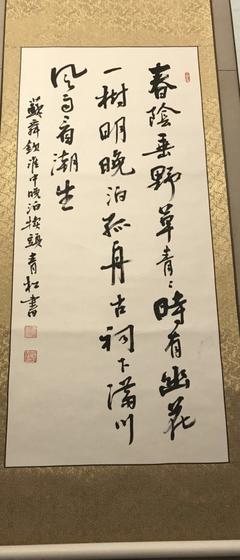 春陰垂野草青々時有幽花
一樹明晚泊孤舟古祠下滿川
風雨看潮生
蘇舜欽淮中晚泊犢頭青松書